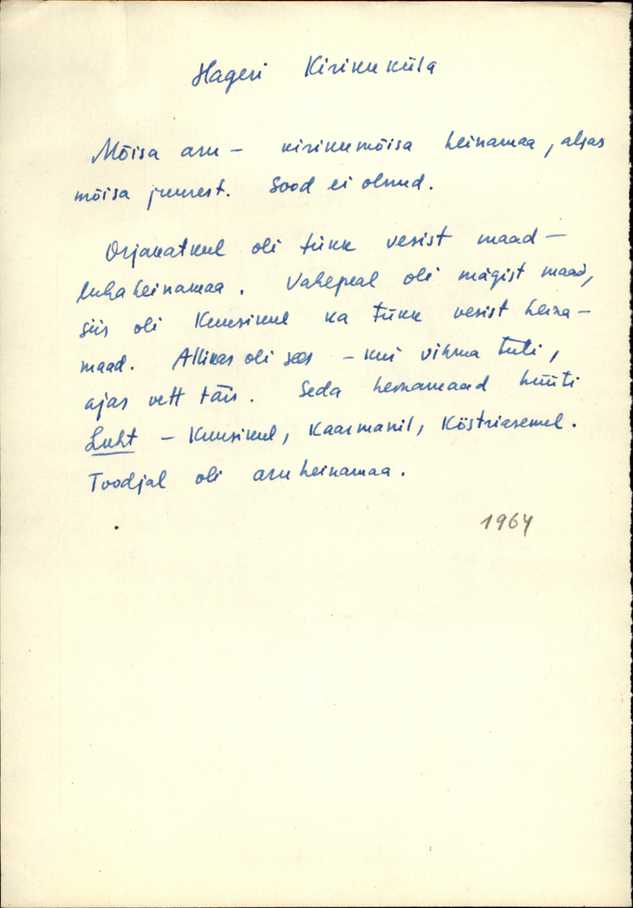 Hageri Kirikuküla
Mõisa aru – kirikumõisa heinamaa, algas
mõisa juurest. Sood ei olnud.
Orjakatkul oli tükk vesist maad –
luhaheinamaa. Vahepeal oli mägist maad,
siis oli Kuusikul ka tükk vesist heina-
maad. Allikas oli sees – kui vihma tuli,
ajas vett täis. Seda heinamaad hüüti
Luht – Kuusikul, Kaarmanil, Köstriasemel.
Toodjal oli aruheinamaa.
1964